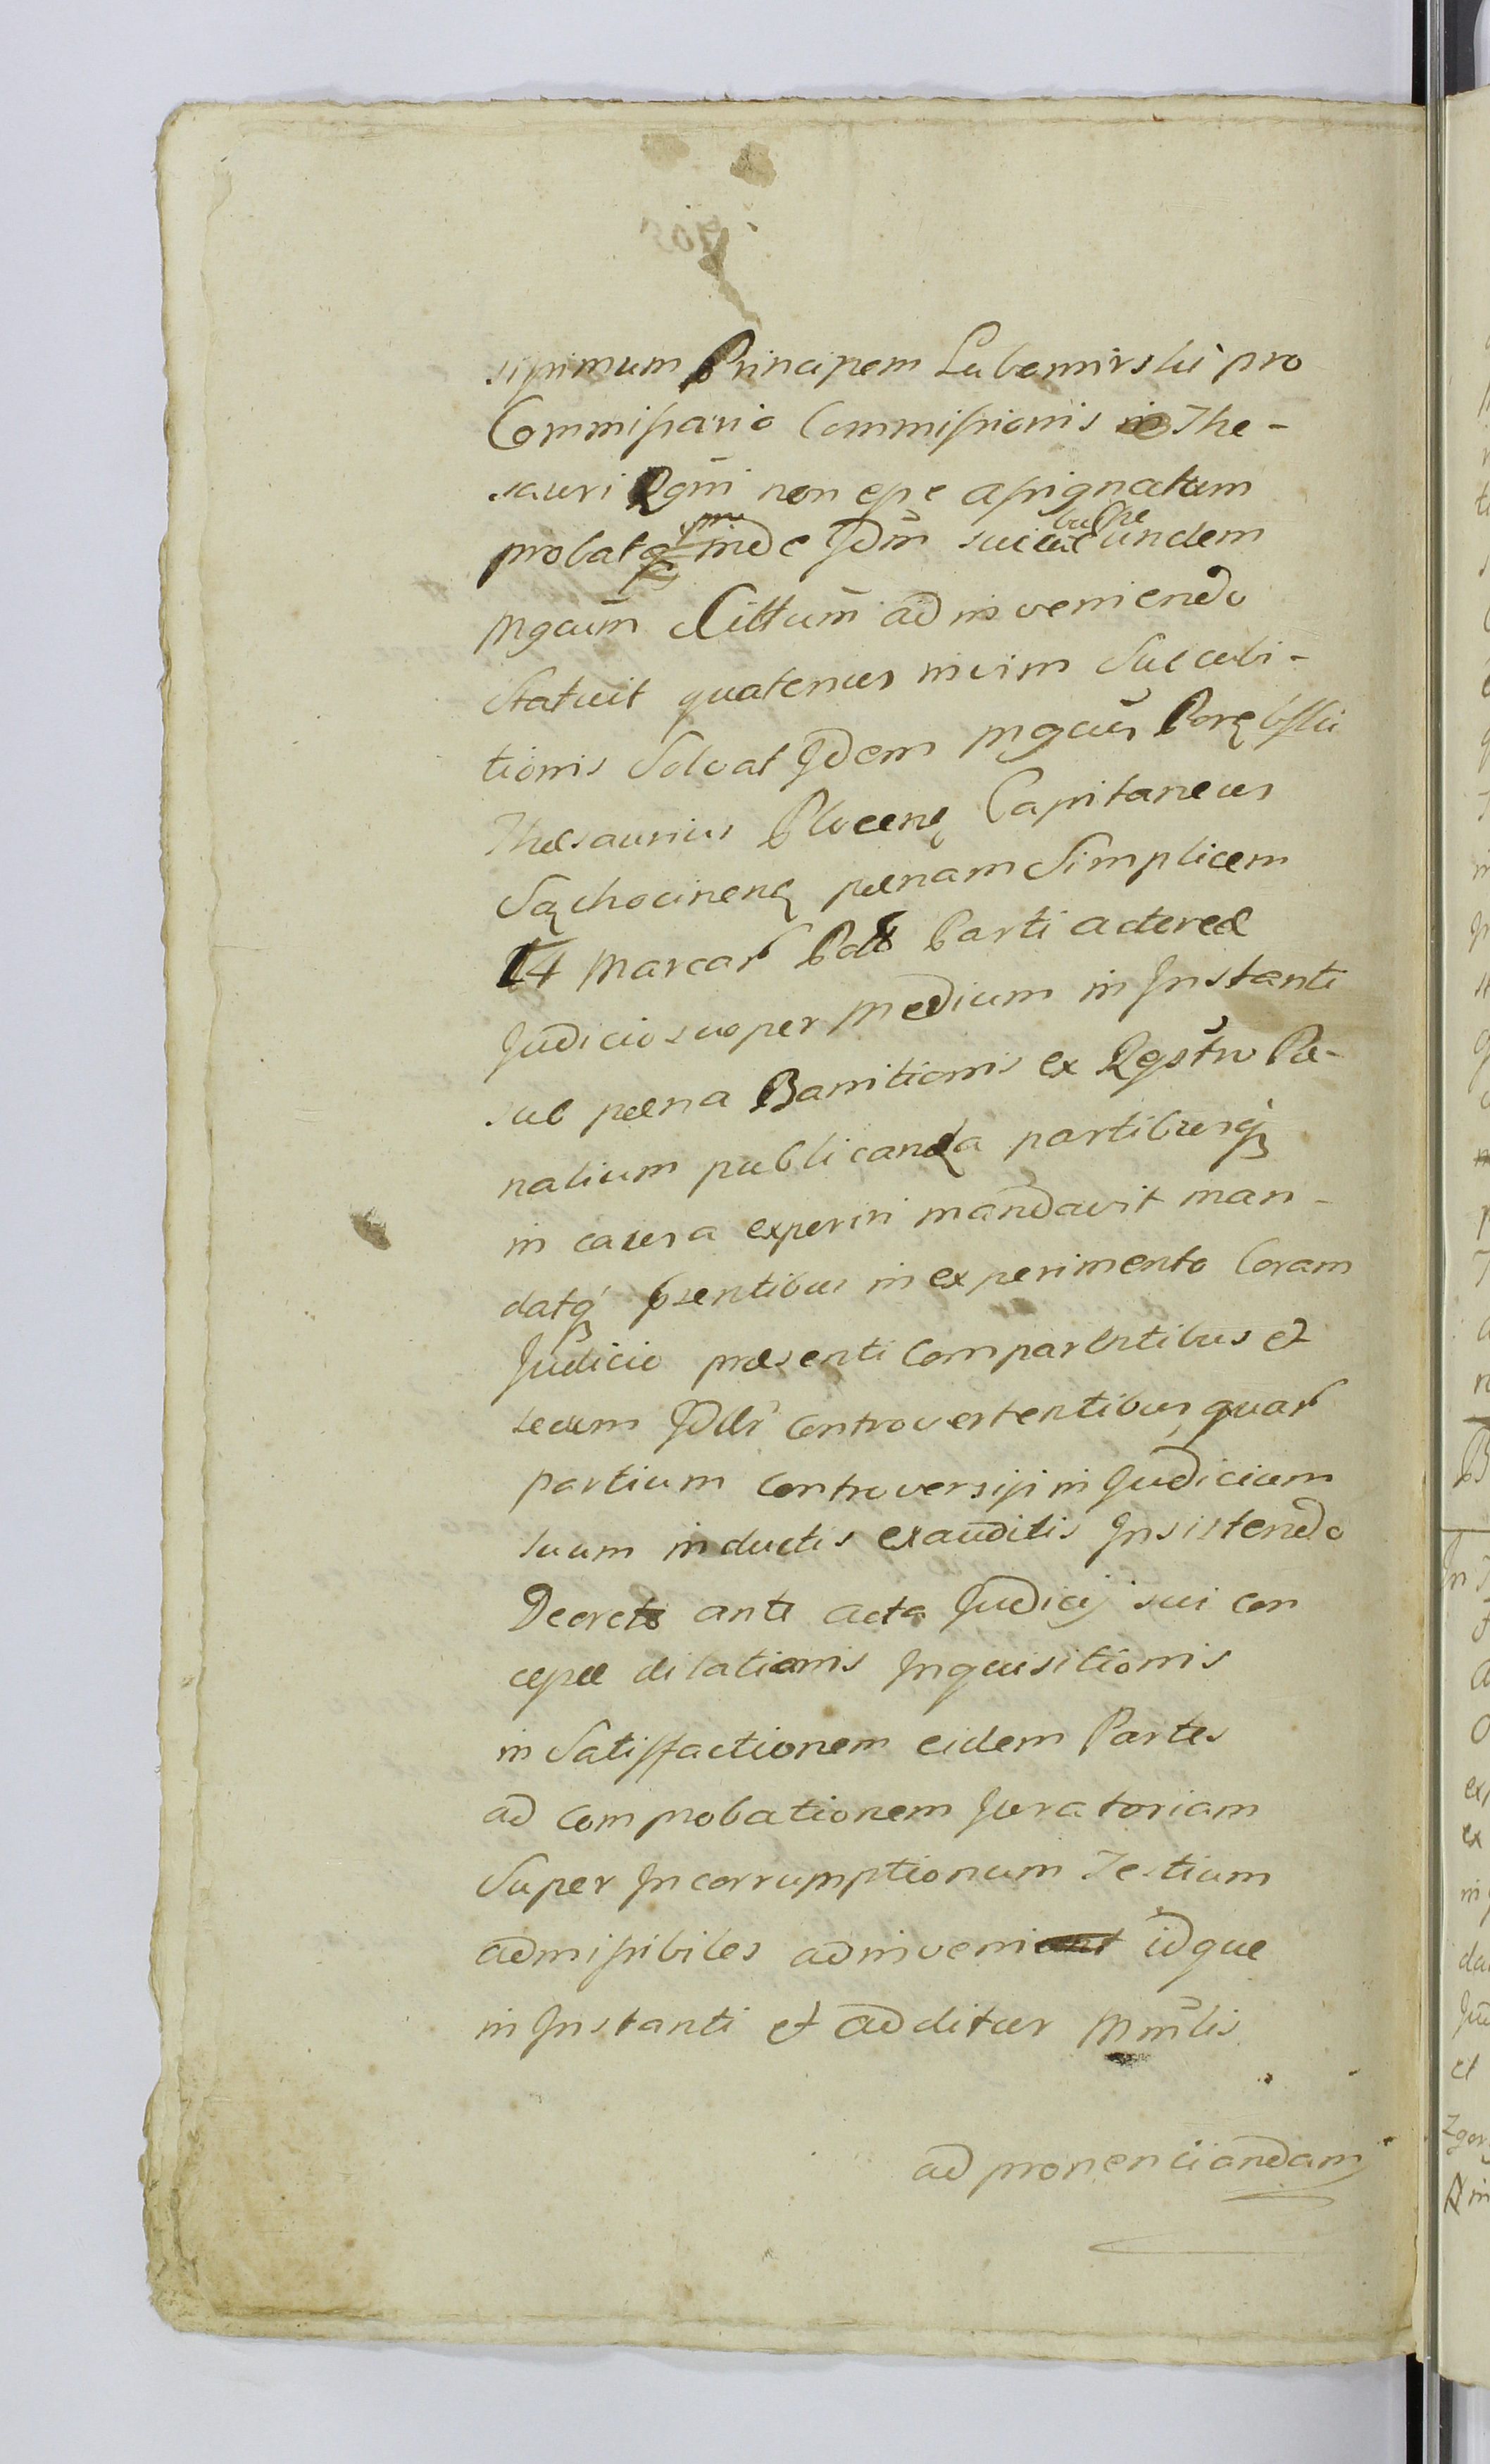 ssimum Principem Lubomirski pro
Commissario Commissionis in The-
sauri Rgni non esse assignatum
probatq inde Jdm succubuisse eundem
Mgcum Cittum adinveniendo
Statuit quatenus in vim Succubi-
tionis Solvat Jdem Mgcus Porębski
Thesaurius Plocenę Capitaneus
Sąchocinenę pænam Simplicem
14 Marcar Poll Parti actoreæ
Judicio suo per Medium in Instanti
sub pæna Bannitionis ex Rgstro Pæ-
nalium publicanda partibusq
in causa experiri mandavit man-
datq psentibus in experimento Coram
Judicio præsenti Comparentibus et
secum controvertentibus, quar
partium controversijs in Judicium
suum inductis exauditis Insistendo
Decreto ante acta Judicij sui con
cessæ dilationis Inquisitionis
in Satisfactionem eidem Partes
ad comprobationem Juratoriam
Super Incorrumptionum Testium
admissibiles adinvenit idque
in Instanti et additur Mnlis
ad pronenciandam